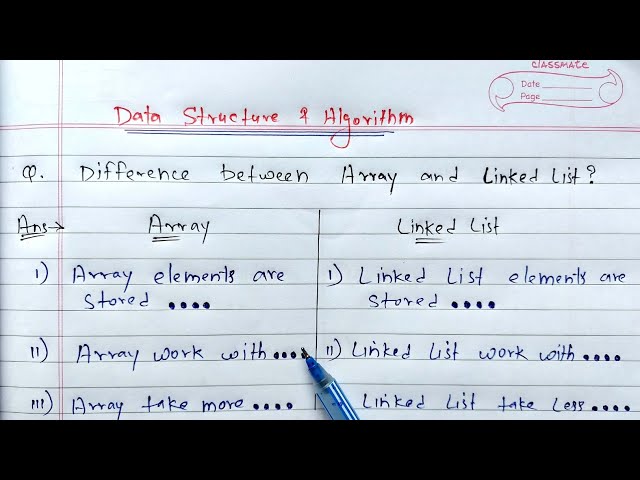 CLASSMATE
Date
Page
Data Structure & Algorithm
Q. Difference between Array and Linked List?
Ans→ Array Linked List
I) Array elements are
stored ....
I) Linked List elements are
stored ....
II) Array work with ....
II) Linked List work with ....
III) Array take more ....
Linked List take Less ....